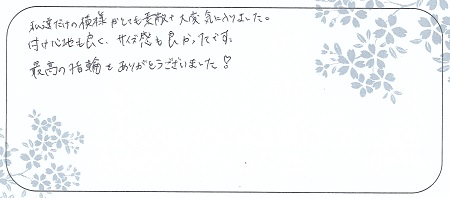 私達だけの模様がとても素敵で大変気に入りました。
付け心地も良く、サイズ感も良かったです。
最高の指輪をありがとうございました♡